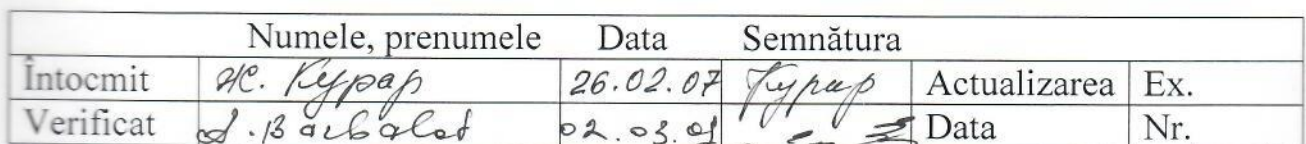 Numele, prenumele Data Semnătura
Întocmit Ж. Курар 26.02.07 Курар Actualizarea Ex.
Verificat Barbalat 02.03. Data Nr.